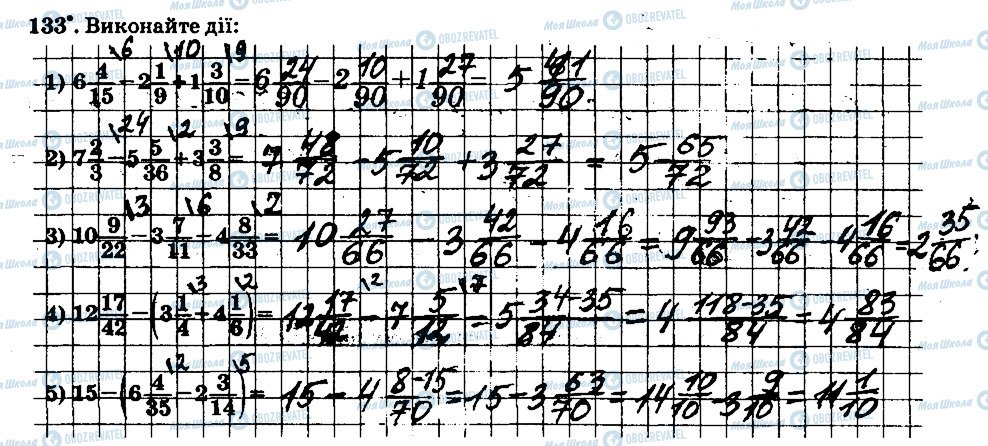 133°. Виконайте дії:
1) 6 4/15 \6 − 2 1/9 \10 + 1 3/10 \9 = 6 24/90 − 2 10/90 + 1 27/90 = 5 41/90.
2) 7 2/3 \24 − 5 5/36 \2 + 3 3/8 \9 = 7 48/72 − 5 10/72 + 3 27/72 = 5 65/72
3) 10 9/22 \3 − 3 7/11 \6 − 4 8/33 \2 = 10 27/66 − 3 42/66 − 4 16/66 = 9 93/66 − 3 42/66 − 4 16/66 = 2 35/66.
4) 12 17/42 − (3 1/4 \3 + 4 1/6 \2) = 12 17/42 \2 − 7 5/12 \7 = 5 34−35/84 = 4 118−35/84 = 4 83/84
5) 15 − (6 4/35 \2 − 2 3/14 \5) = 15 − 4 8−15/70 = 15 − 3 63/70 = 14 10/10 − 3 9/10 = 11 1/10